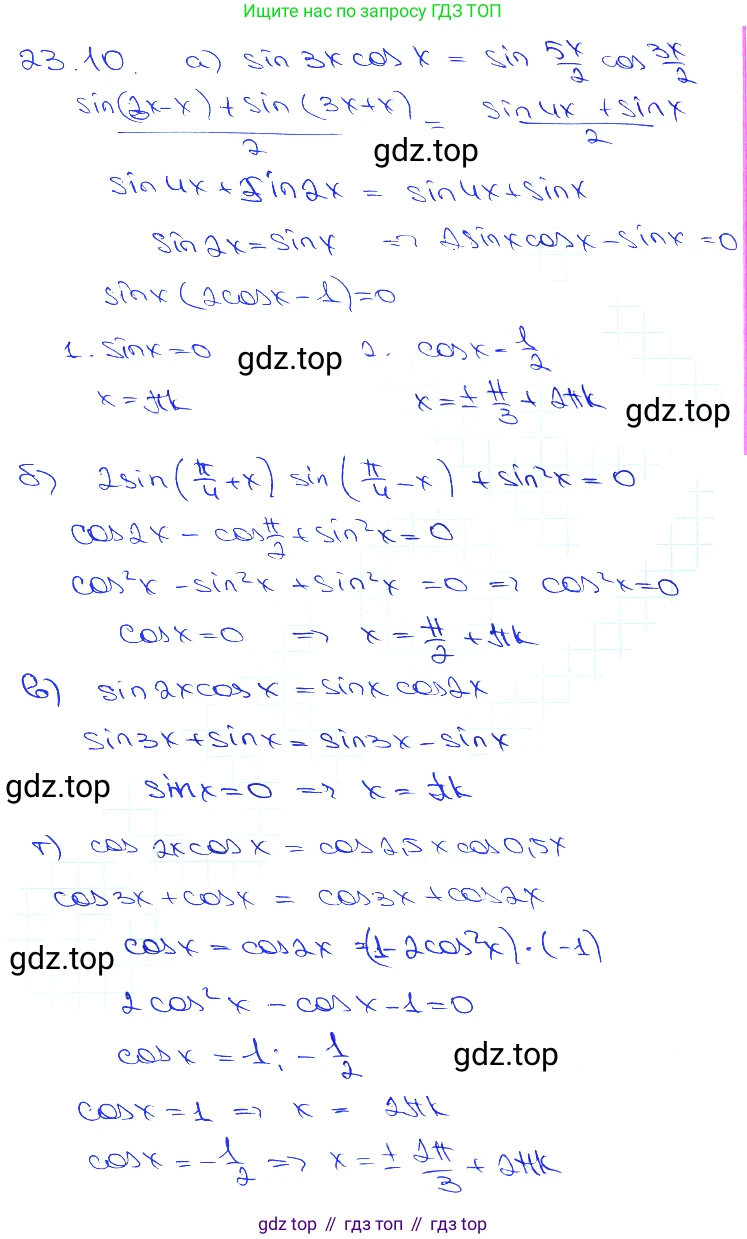 Ищите нас по запросу ГДЗ ТОП
23.10. а) sin 3x cos x = sin 5x/2 cos 3x/2
(sin(3x-x) + sin(3x+x))/2 = (sin4x + sinx)/2
gdz.top
sin4x + sin2x = sin4x + sinx
sin2x = sinx => 2sinxcosx - sinx = 0
sinx(2cosx - 1) = 0
1. sinx = 0 gdz.top 2. cosx = 1/2
x = πk x = ± π/3 + 2πk gdz.top
б) 2sin(π/4 + x) sin(π/4 - x) + sin²x = 0
cos2x - cos π/2 + sin²x = 0
cos²x - sin²x + sin²x = 0 => cos²x = 0
cosx = 0 => x = π/2 + πk
в) sin2xcosx = sinx cos2x
sin3x + sinx = sin3x - sinx
gdz.top sinx = 0 => x = πk
г) cos2xcosx = cos2,5x cos0,5x
cos3x + cosx = cos3x + cos2x
gdz.top cosx = cos2x = (1 - 2cos²x) · (-1)
2cos²x - cosx - 1 = 0
cosx = 1; -1/2 gdz.top
cosx = 1 => x = 2πk
cosx = -1/2 => x = ± 2π/3 + 2πk
gdz top // гдз топ // gdz.top